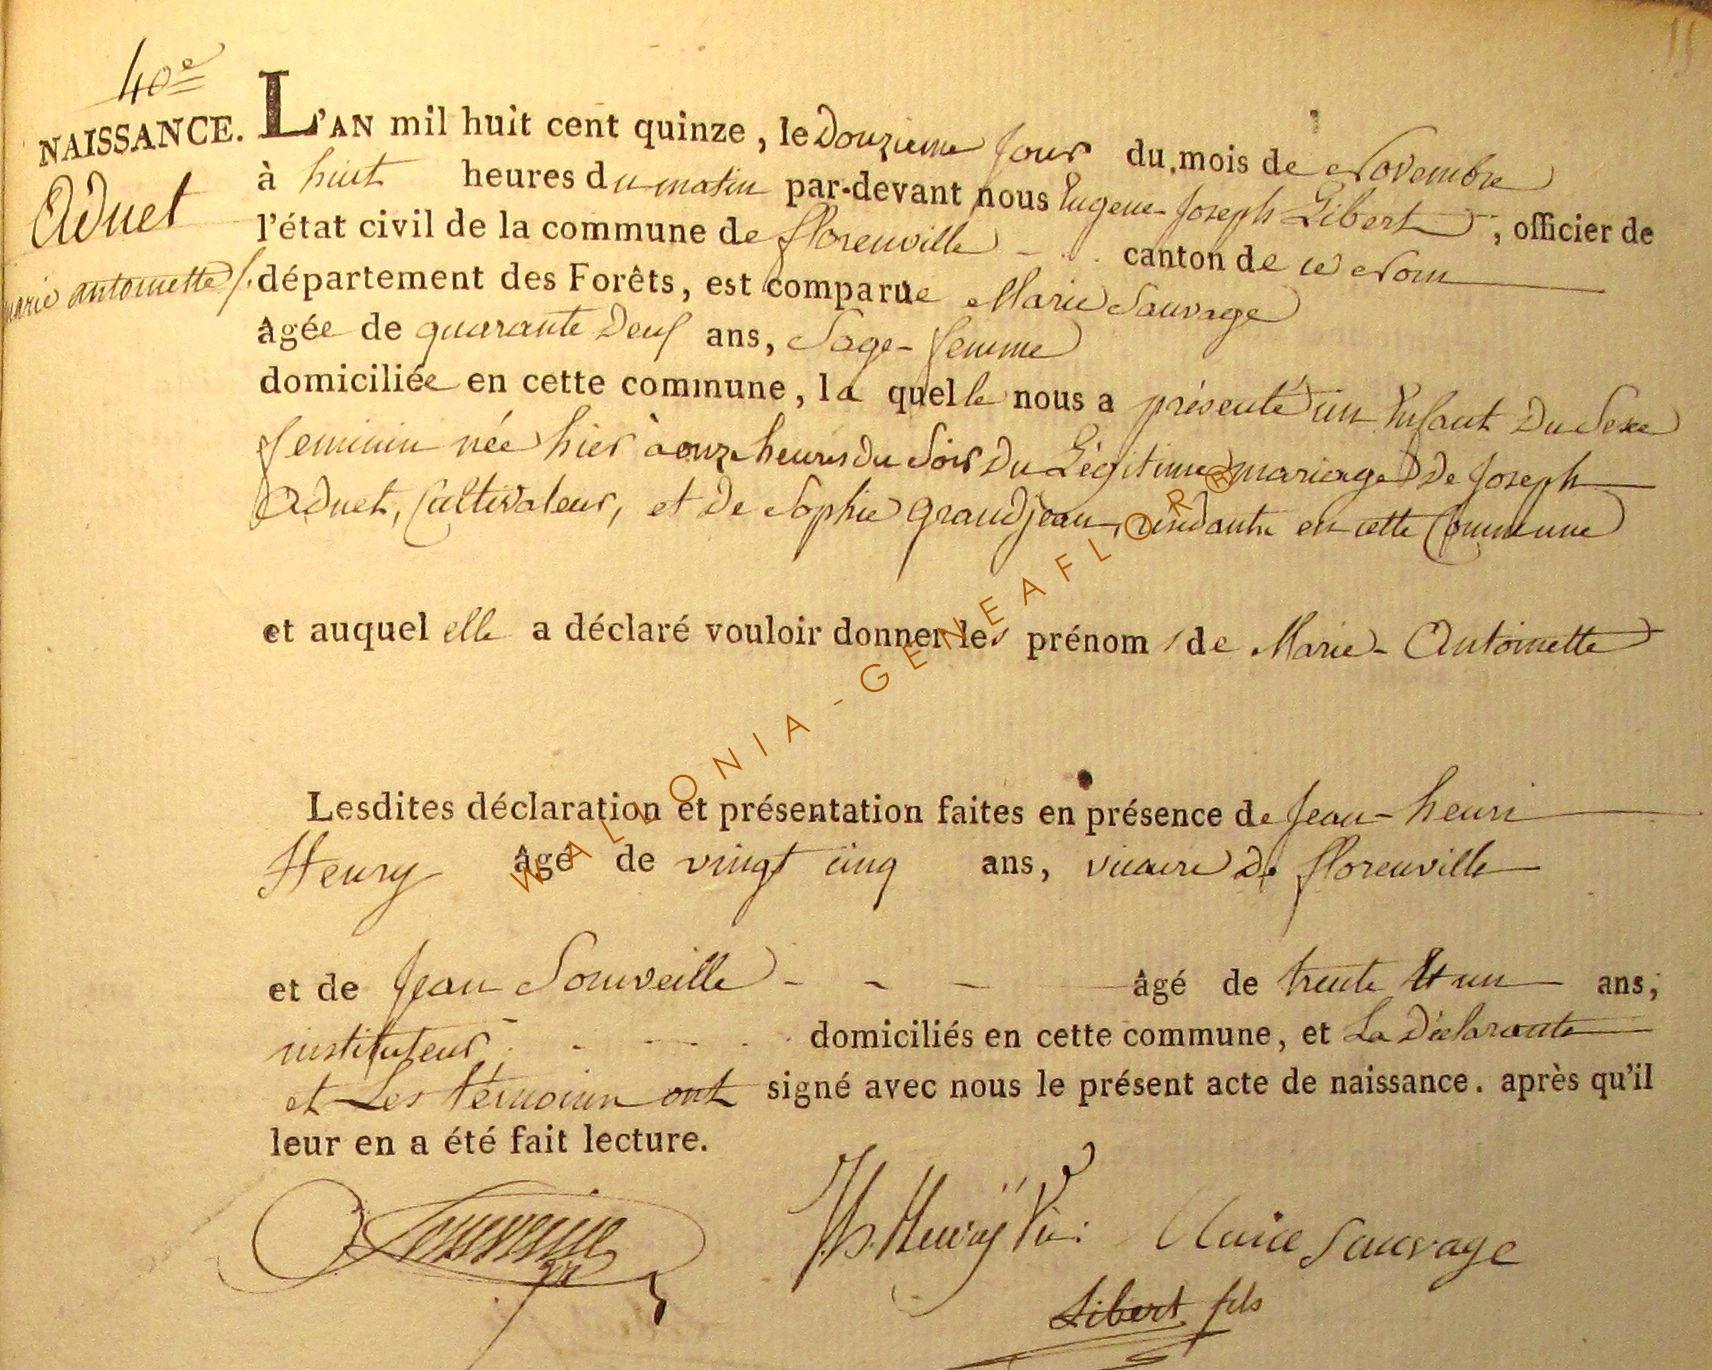 40e
NAISSANCE.
Adnet
marie antoinette
L'AN mil huit cent quinze, le Douzieme jour du mois de Novembre
à huit heures du matin par-devant nous Eugene-Joseph Libert, officier de
l'état civil de la commune de florenville canton de ce Nom
département des Forêts, est comparue Marie Sauvage
âgée de quarante Deux ans, Sage-femme
domiciliée en cette commune, la quelle nous a présenté un Enfant Du Sexe
feminin née hier à onze heures du Soir Du Légitime mariage De Joseph
Adnet, Cultivateur, et De Sophie grandjean, en cette Commune
et auquel elle a déclaré vouloir donner les prénoms de Marie-Antoinette
Lesdites déclaration et présentation faites en présence de Jean-henri
Henry âgé de vingt cinq ans, vicaire de florenville
et de Jean Souveille âgé de trente et un ans,
instituteur domiciliés en cette commune, et La Déclarante
et Les témoins ont signé avec nous le présent acte de naissance. après qu'il
leur en a été fait lecture.
Souveille
Jh. Henrÿ Vic: Marie Sauvage
Libert fils
WALLONIA-GENEAFLORE